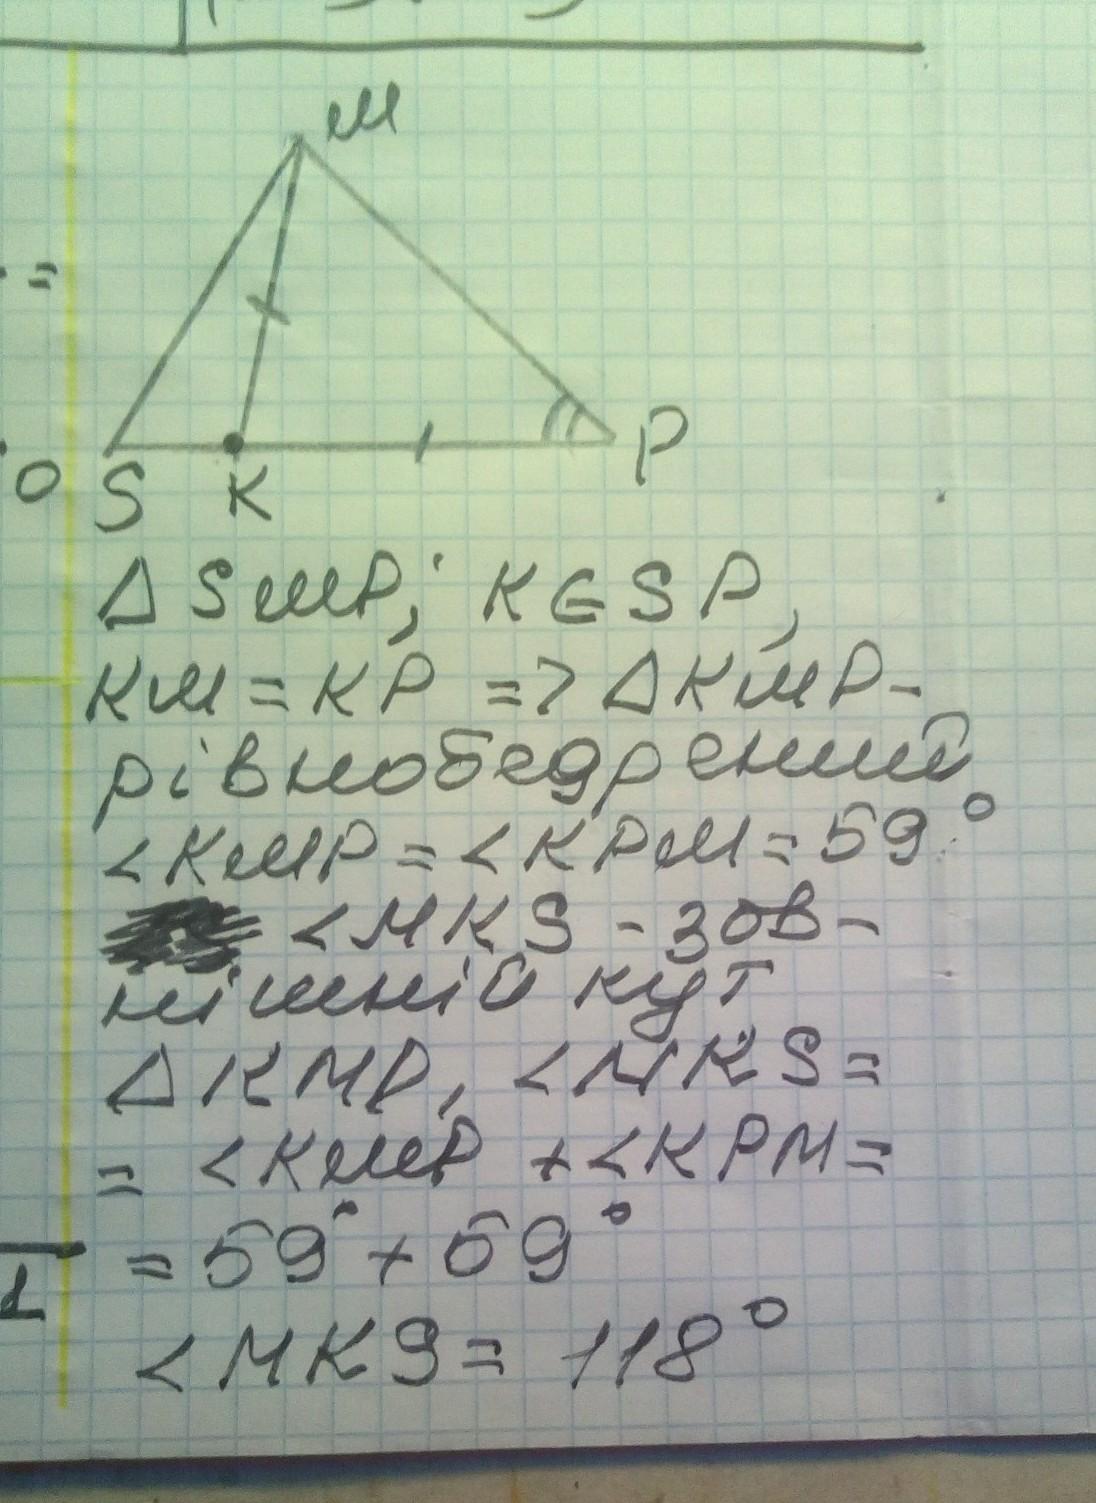 M
=
P
O S K
Δ SMP; K∈SP,
KM = KP => Δ KMP -
рівнобедрений
<KMP = <KPM = 59°
<MKS - зов-
нішній кут
Δ KMP, <MKS =
= <KMP + <KPM =
= 59° + 59°
<MKS = 118°